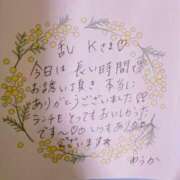 Kさま♡
今日は長い時間
お誘い頂き 本当に
ありがとうございました♡
ランチもとてもおいしかった
です〜♡♡いつもありがとう
ございます★
ゆうか